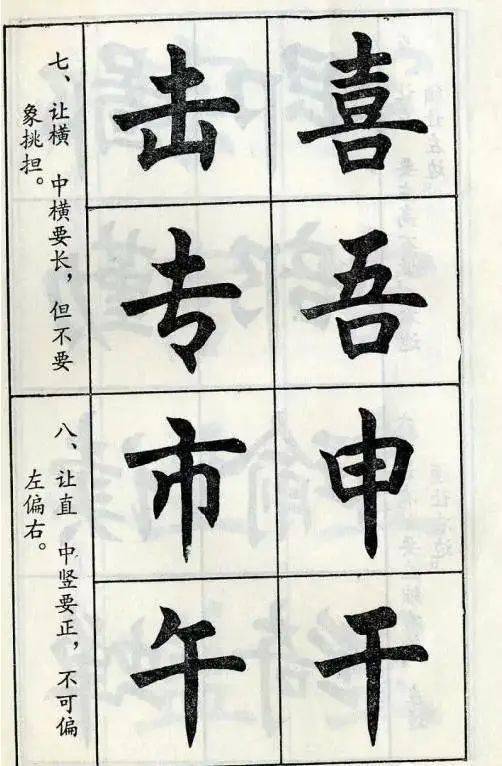 喜
吾
申
干
击
专
市
午
七、让横 中横要长，但不要
象挑担。
八、让直 中竖要正，不可偏
左偏右。